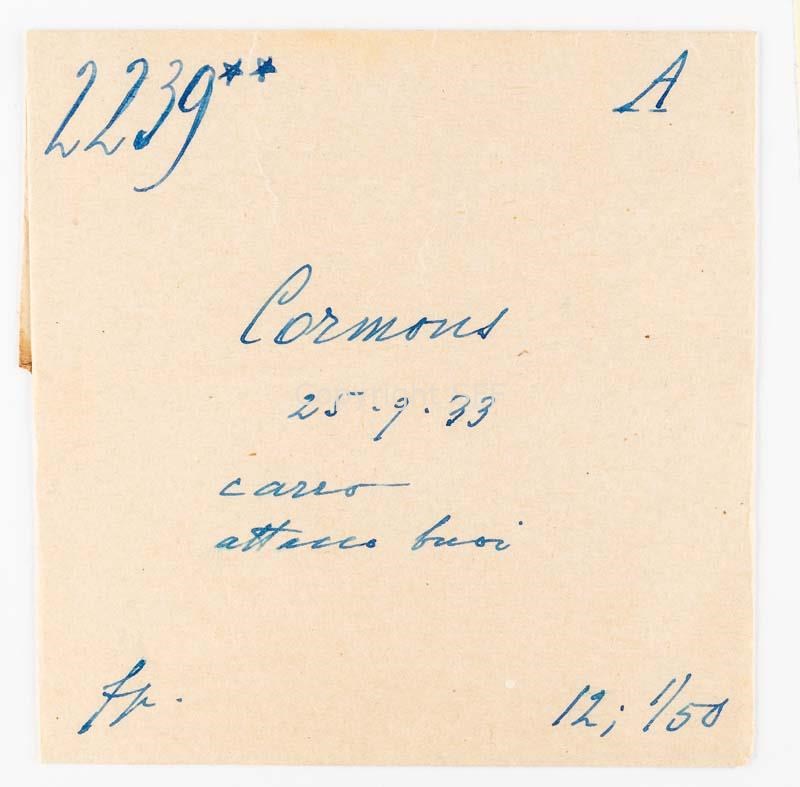 2239** A
Cormons
25.9.33
carro
attacco buoi
fp. 12; 1/50